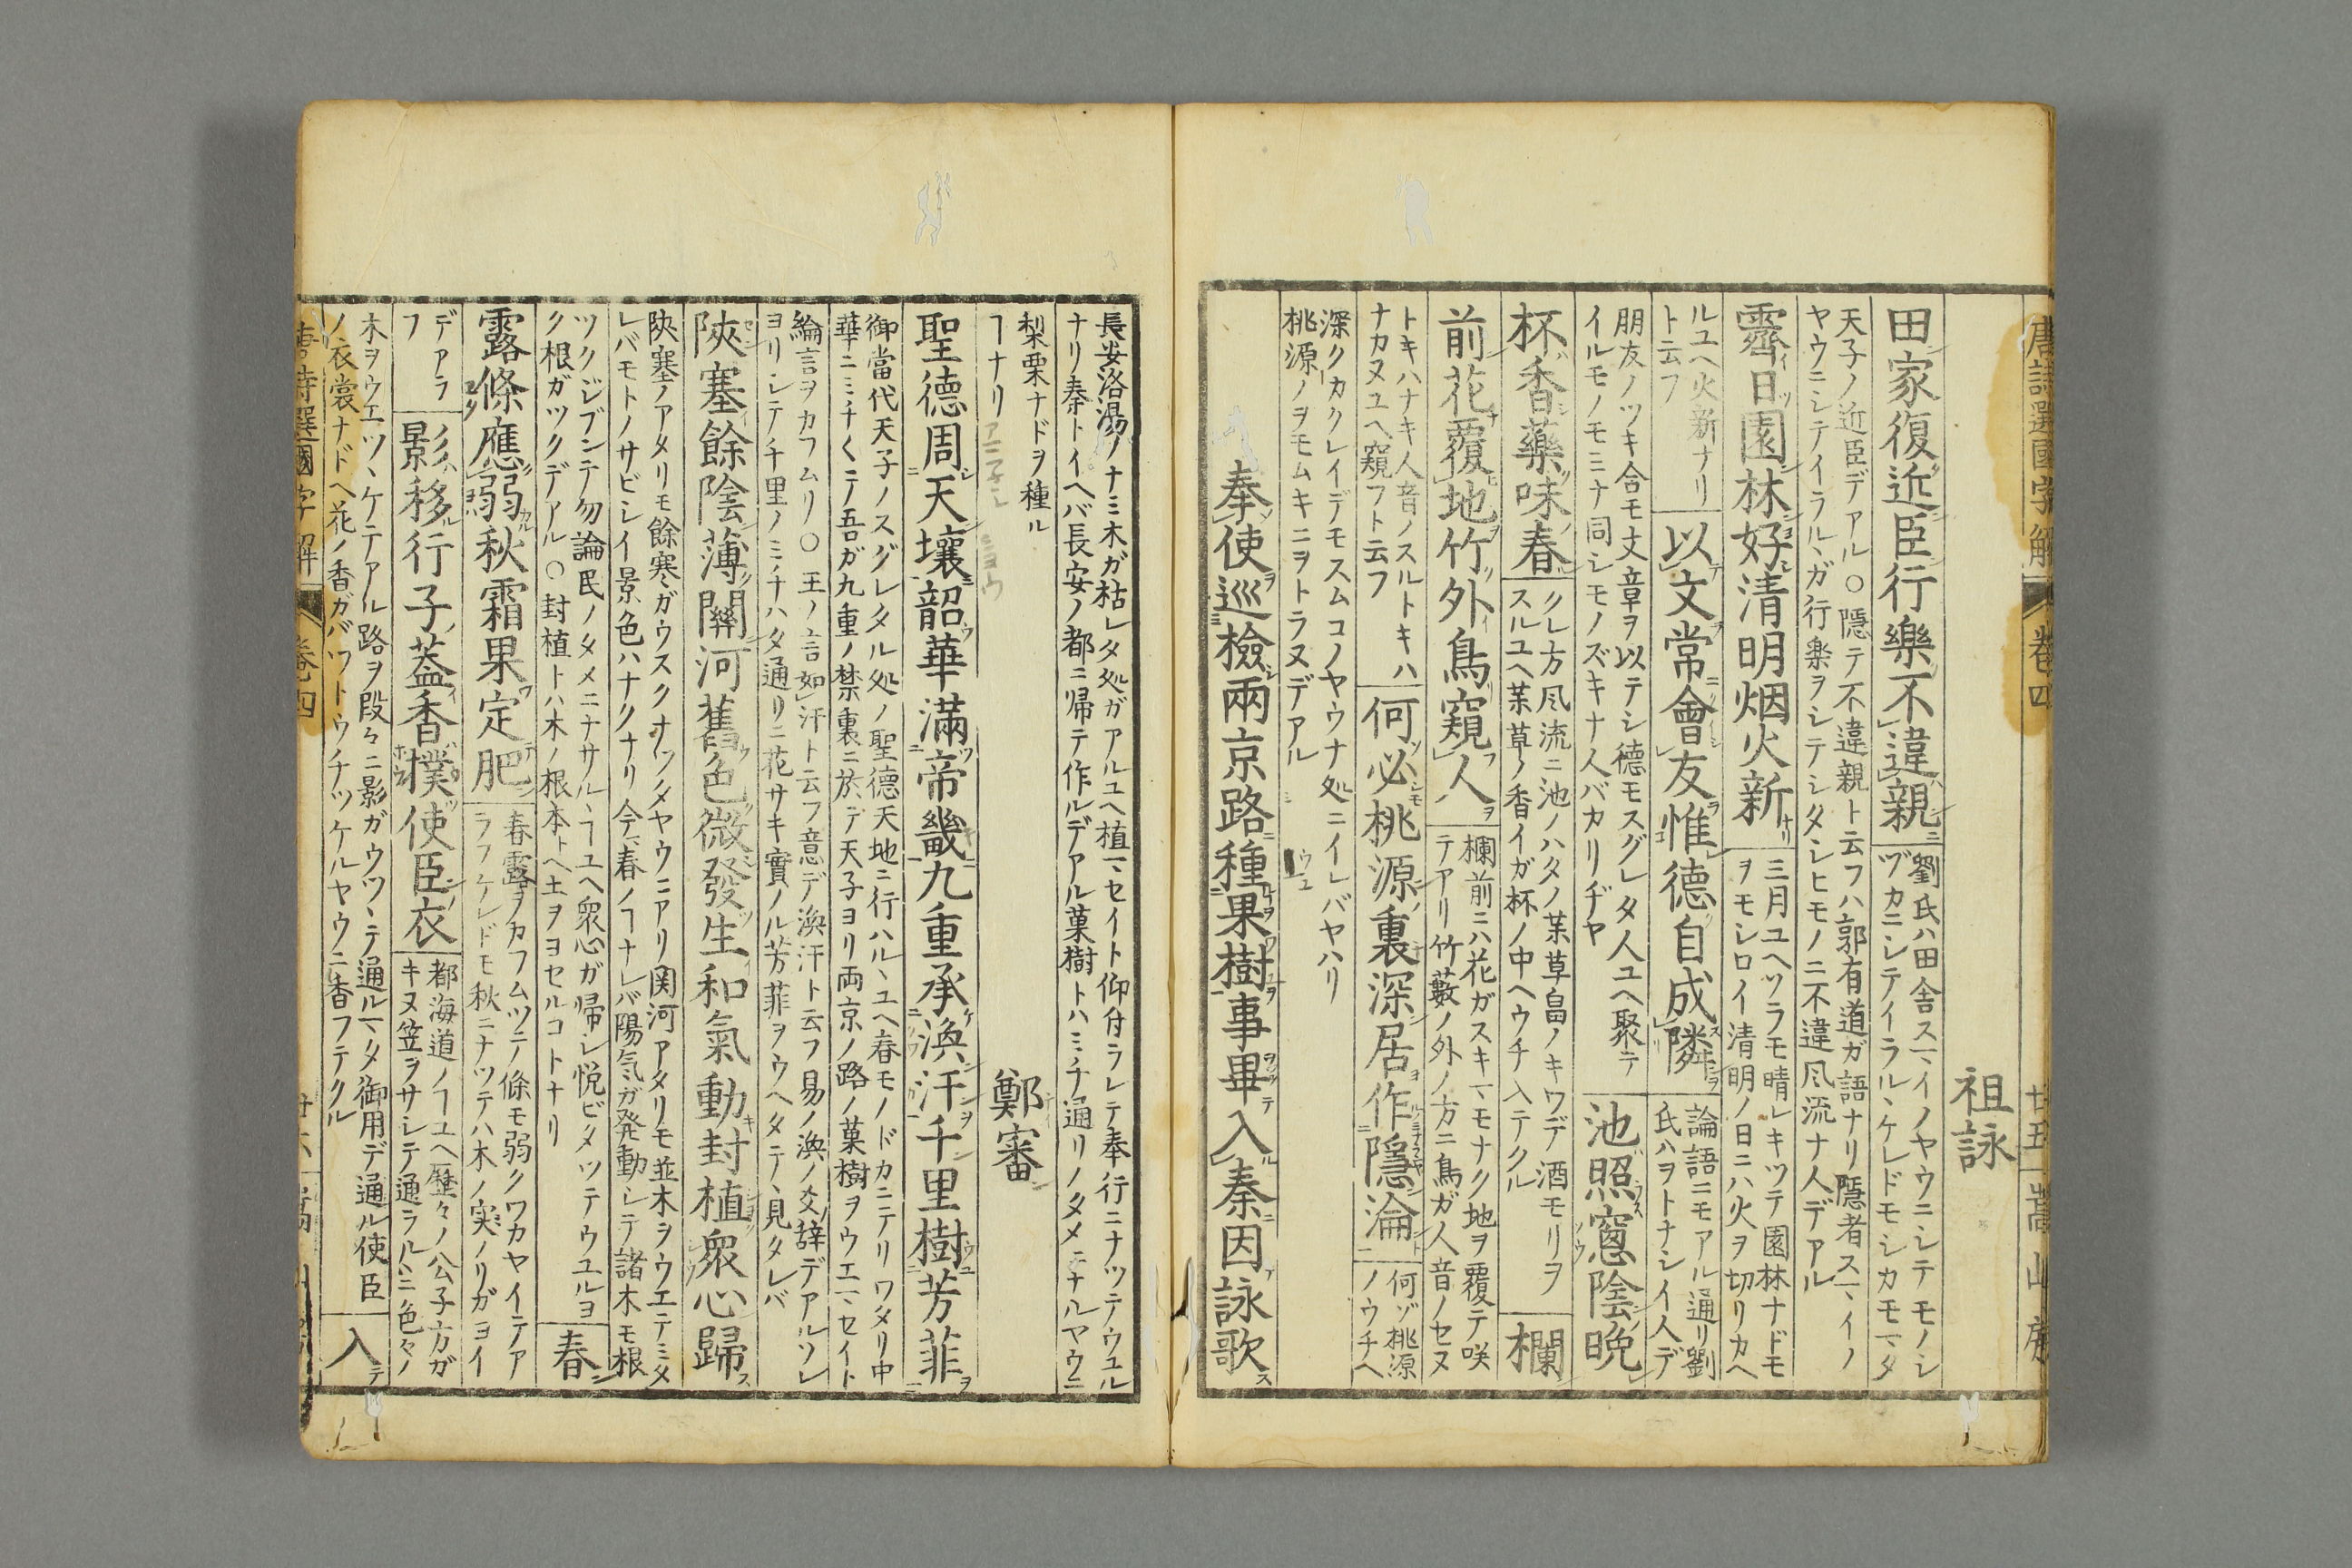 唐詩選國字解 卷四 廿五 嵩山房
祖詠
田家復近臣行樂不違親
劉氏ハ田舎スマイノヤウニシテモノシ
ヅカニシテイラルヽケレドモシカモマタ
天子ノ近臣デアル○隠テ不違親ト云フハ郭有道ガ語ナリ隱者スマイノ
ヤウニシテイラルヽガ行楽ヲシテシタシヒモノニ不違凨流ナ人デアル
霽日園林好清明烟火新
三月ユヘソラモ晴レキツテ園林ナドモ
ヲモシロイ清明ノ日ニハ火ヲ切リカヘ
ルユヘ火新ナリ
ト云フ
以文常會友惟德自成隣
論語ニモアル通リ劉
氏ハヲトナシイ人デ
朋友ノツキ合モ文章ヲ以テシ德モスグレタ人ユヘ聚テ
イルモノモミナ同シモノズキナ人バカリヂヤ
池照窻陰晩
杯香藥味春
クレ方凨流ニ池ノハタノ茱草畠ノキワデ酒モリヲ
スルユヘ茱草ノ香イガ杯ノ中ヘウチ入テクル
欄
前花覆地竹外鳥窺人
欄前ニハ花ガスキマモナク地ヲ覆テ咲
テアリ竹藪ノ外ノ方ニ鳥ガ人音ノセヌ
トキハナキ人音ノスルトキハ
ナカヌユヘ窺フト云フ
何必桃源裏深居作隱淪
何ゾ桃源
ノウチヘ
深クカクレイデモスムコノヤウナ処ニイレバヤハリ
桃源ノヲモムキニヲトラヌデアル
奉使巡檢兩京路種果樹事畢入秦因詠歌
長安洛陽ノナミ木ガ枯レタ処ガアルユヘ植マセイト仰付ラレテ奉行ニナツテウユル
ナリ秦トイヘバ長安ノ都ニ帰テ作ルデアル菓樹トハミチ通リノタメニナルヤウニ
梨栗ナドヲ種ル
ヿナリ
鄭審
聖德周天壤韶華滿帝畿九重承渙汗千里樹芳菲
御當代天子ノスグレタル処ノ聖德天地ニ行ハルヽユヘ春モノドカニテリワタリ中
華ニミチ〱テ吾ガ九重ノ禁裏ニ於デ天子ヨリ両京ノ路ノ菓樹ヲウエマセイト
綸言ヲカフムリ○王ノ言如汗ト云フ意デ渙汗ト云フ易ノ渙ノ爻辞デアルソレ
ヨリシテ千里ノミチハタ通リニ花サキ實ノル芳菲ヲウヘタテヽ見タレバ
陝塞餘陰薄關河舊色微發生和氣動封植衆心歸
陝塞ノアタリモ餘寒ガウスクナツタヤウニアリ関河アタリモ並木ヲウエテミタ
レバモトノサビシイ景色ハナクナリ今春ノヿナレバ陽気ガ発動シテ諸木モ根
ツクジブンテ勿論民ノタメニナサルヽヿユヘ衆心ガ帰シ悦ビタツテウユルヨ
ク根ガツクデアル○封植トハ木ノ根本ヘ土ヲヨセルコトナリ
春
露條應弱秋霜果定肥
春露ヲカフムツテノ條モ弱クワカヤイテア
ラフケレドモ秋ニナツテハ木ノ実ノリガヨイ
デアラ
フ
影移行子蓋香撲使臣衣
都海道ノヿユヘ歴々ノ公子方ガ
キヌ笠ヲサシテ通ラルヽニ色々ノ
木ヲウエツヽケテアル路ヲ段々ニ影ガウツヽテ通ルマタ御用デ通ル使臣
ノ衣裳ナドヘ花ノ香ガバツトウチツケルヤウニ香フテクル
入
唐詩選國字解 卷四